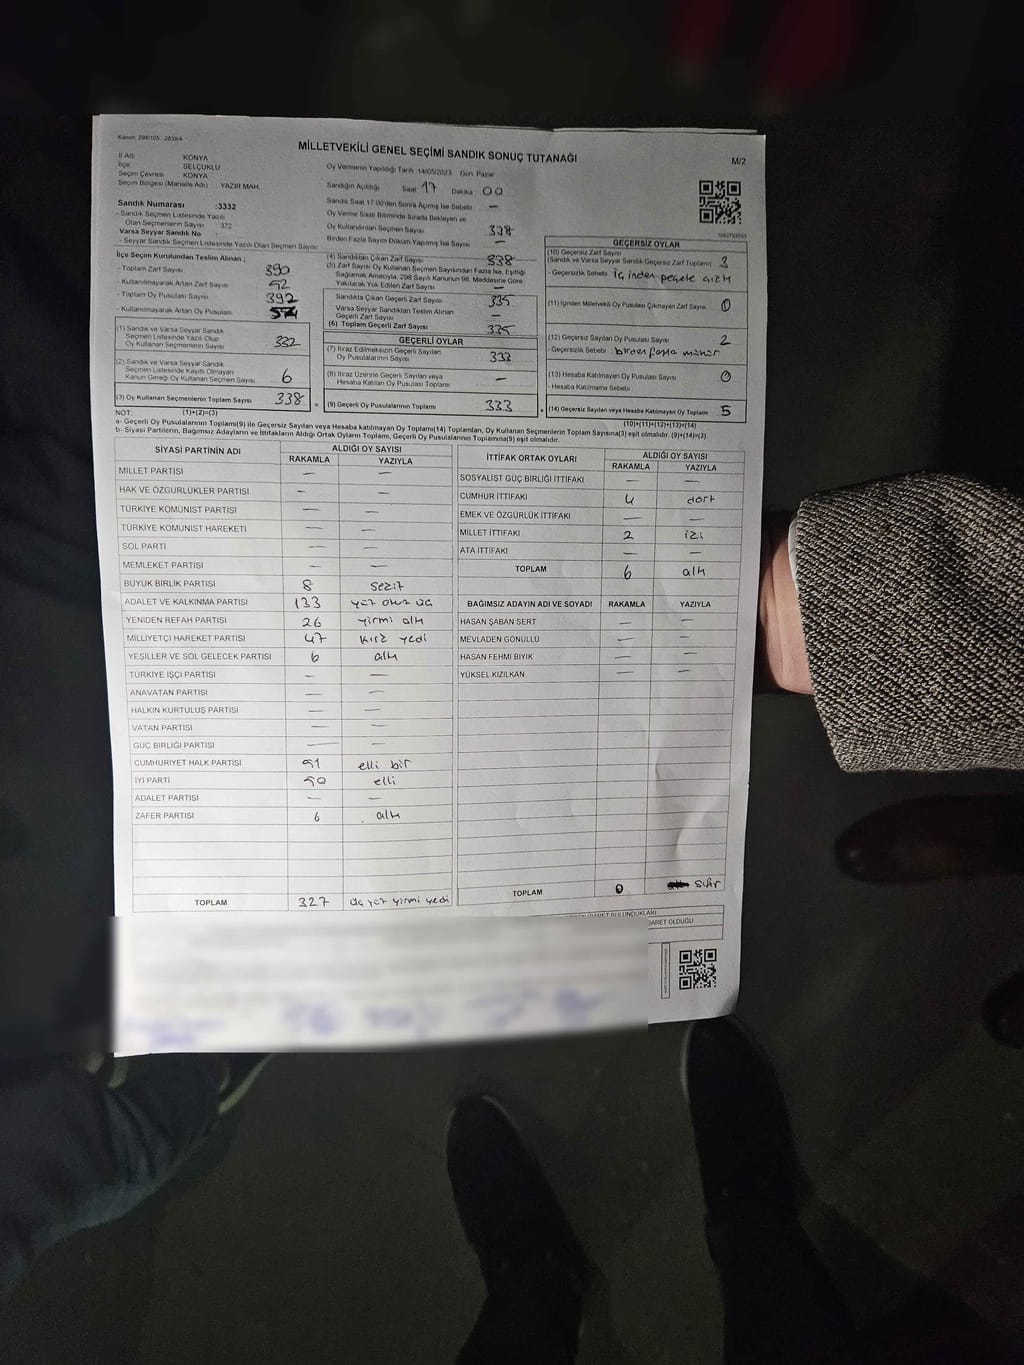 Kanun, 298/105 , 2839/4
MİLLETVEKİLİ GENEL SEÇİMİ SANDIK SONUÇ TUTANAĞI
M/2
İl Adı : KONYA
İlçe : SELÇUKLU
Seçim Çevresi : KONYA
Seçim Bölgesi (Mahalle Adı) : YAZIR MAH.
Sandık Numarası :3332
- Sandık Seçmen Listesinde Yazılı
Olan Seçmenlerin Sayısı : 372
Varsa Seyyar Sandık No :
- Seyyar Sandık Seçmen Listesinde Yazılı Olan Seçmen Sayısı:
Oy Vermenin Yapıldığı Tarih :14/05/2023 Gün: Pazar
Sandığın Açıldığı Saat 17 Dakika 00
Sandık Saat 17.00'den Sonra Açılmış İse Sebebi —
Oy Verme Saati Bitiminde Sırada Bekleyen ve
Oy Kullandırılan Seçmen Sayısı 338
Birden Fazla Sayım Döküm Yapılmış İse Sayısı —
İlçe Seçim Kurulundan Teslim Alınan ;
- Toplam Zarf Sayısı 390
- Kullanılmayarak Artan Zarf Sayısı 52
- Toplam Oy Pusulası Sayısı 392
- Kullanılmayarak Artan Oy Pusulası 54
(1) Sandık ve Varsa Seyyar Sandık
Seçmen Listesinde Yazılı Olup
Oy Kullanan Seçmenlerin Sayısı 332
(2) Sandık ve Varsa Seyyar Sandık
Seçmen Listesinde Kayıtlı Olmayan
Kanun Gereği Oy Kullanan Seçmen Sayısı 6
(3) Oy Kullanan Seçmenlerin Toplam Sayısı 338
(4) Sandıktan Çıkan Zarf Sayısı 338
(5) Zarf Sayısı Oy Kullanan Seçmen Sayısından Fazla İse, Eşitliği
Sağlamak Amacıyla, 298 Sayılı Kanunun 98. Maddesine Göre
Yakılarak Yok Edilen Zarf Sayısı —
Sandıkta Çıkan Geçerli Zarf Sayısı 335
Varsa Seyyar Sandıktan Teslim Alınan
Geçerli Zarf Sayısı —
(6) Toplam Geçerli Zarf Sayısı 335
GEÇERLİ OYLAR
(7) İtiraz Edilmeksizin Geçerli Sayılan
Oy Pusulalarının Sayısı 333
(8) İtiraz Üzerine Geçerli Sayılan veya
Hesaba Katılan Oy Pusulası Toplamı —
= (9) Geçerli Oy Pusulalarının Toplamı 333
GEÇERSİZ OYLAR
(10) Geçersiz Zarf Sayısı
(Sandık ve Varsa Seyyar Sandık Geçersiz Zarf Toplamı) 3
- Geçersizlik Sebebi: içinden peçete çıktı
(11) İçinden Milletvekili Oy Pusulası Çıkmayan Zarf Sayısı 0
(12) Geçersiz Sayılan Oy Pusulası Sayısı 2
- Geçersizlik Sebebi birden fazla mühür
(13) Hesaba Katılmayan Oy Pusulası Sayısı 0
- Hesaba Katılmama Sebebi
+ (14) Geçersiz Sayılan veya Hesaba Katılmayan Oy Toplamı 5
NOT: (1)+(2)=(3) (10)+(11)+(12)+(13)=(14)
a- Geçerli Oy Pusulalarının Toplamı(9) ile Geçersiz Sayılan veya Hesaba Katılmayan Oy Toplamı(14) Toplamları, Oy Kullanan Seçmenlerin Toplam Sayısına(3) eşit olmalıdır. (9)+(14)=(3)
b- Siyasi Partilerin, Bağımsız Adayların ve İttifakların Aldığı Ortak Oyların Toplamı, Geçerli Oy Pusulalarının Toplamına(9) eşit olmalıdır.
SİYASİ PARTİNİN ADI ALDIĞI OY SAYISI
RAKAMLA YAZIYLA
MİLLET PARTİSI — —
HAK VE ÖZGÜRLÜKLER PARTİSİ — —
TÜRKİYE KOMÜNİST PARTİSİ — —
TÜRKİYE KOMÜNİST HAREKETİ — —
SOL PARTİ — —
MEMLEKET PARTİSİ — —
BÜYÜK BİRLİK PARTİSİ 8 sekiz
ADALET VE KALKINMA PARTİSİ 133 yüz otuz üç
YENİDEN REFAH PARTİSİ 26 yirmi altı
MİLLİYETÇİ HAREKET PARTİSİ 47 kırk yedi
YEŞİLLER VE SOL GELECEK PARTİSİ 6 altı
TÜRKİYE İŞÇİ PARTİSİ — —
ANAVATAN PARTİSİ — —
HALKIN KURTULUŞ PARTİSİ — —
VATAN PARTİSİ — —
GÜÇ BİRLİĞİ PARTİSİ — —
CUMHURİYET HALK PARTİSİ 51 elli bir
İYİ PARTİ 50 elli
ADALET PARTİSİ — —
ZAFER PARTİSİ 6 altı
TOPLAM 327 üç yüz yirmi yedi
İTTİFAK ORTAK OYLARI ALDIĞI OY SAYISI
RAKAMLA YAZIYLA
SOSYALİST GÜÇ BİRLİĞİ İTTİFAKI — —
CUMHUR İTTİFAKI 4 dört
EMEK VE ÖZGÜRLÜK İTTİFAKI — —
MİLLET İTTİFAKI 2 iki
ATA İTTİFAKI — —
TOPLAM 6 altı
BAĞIMSIZ ADAYIN ADI VE SOYADI RAKAMLA YAZIYLA
HASAN ŞABAN SERT — —
MEVLADEN GÖNÜLLÜ — —
HASAN FEHMİ BIYIK — —
YÜKSEL KIZILKAN — —
TOPLAM 0 sıfır